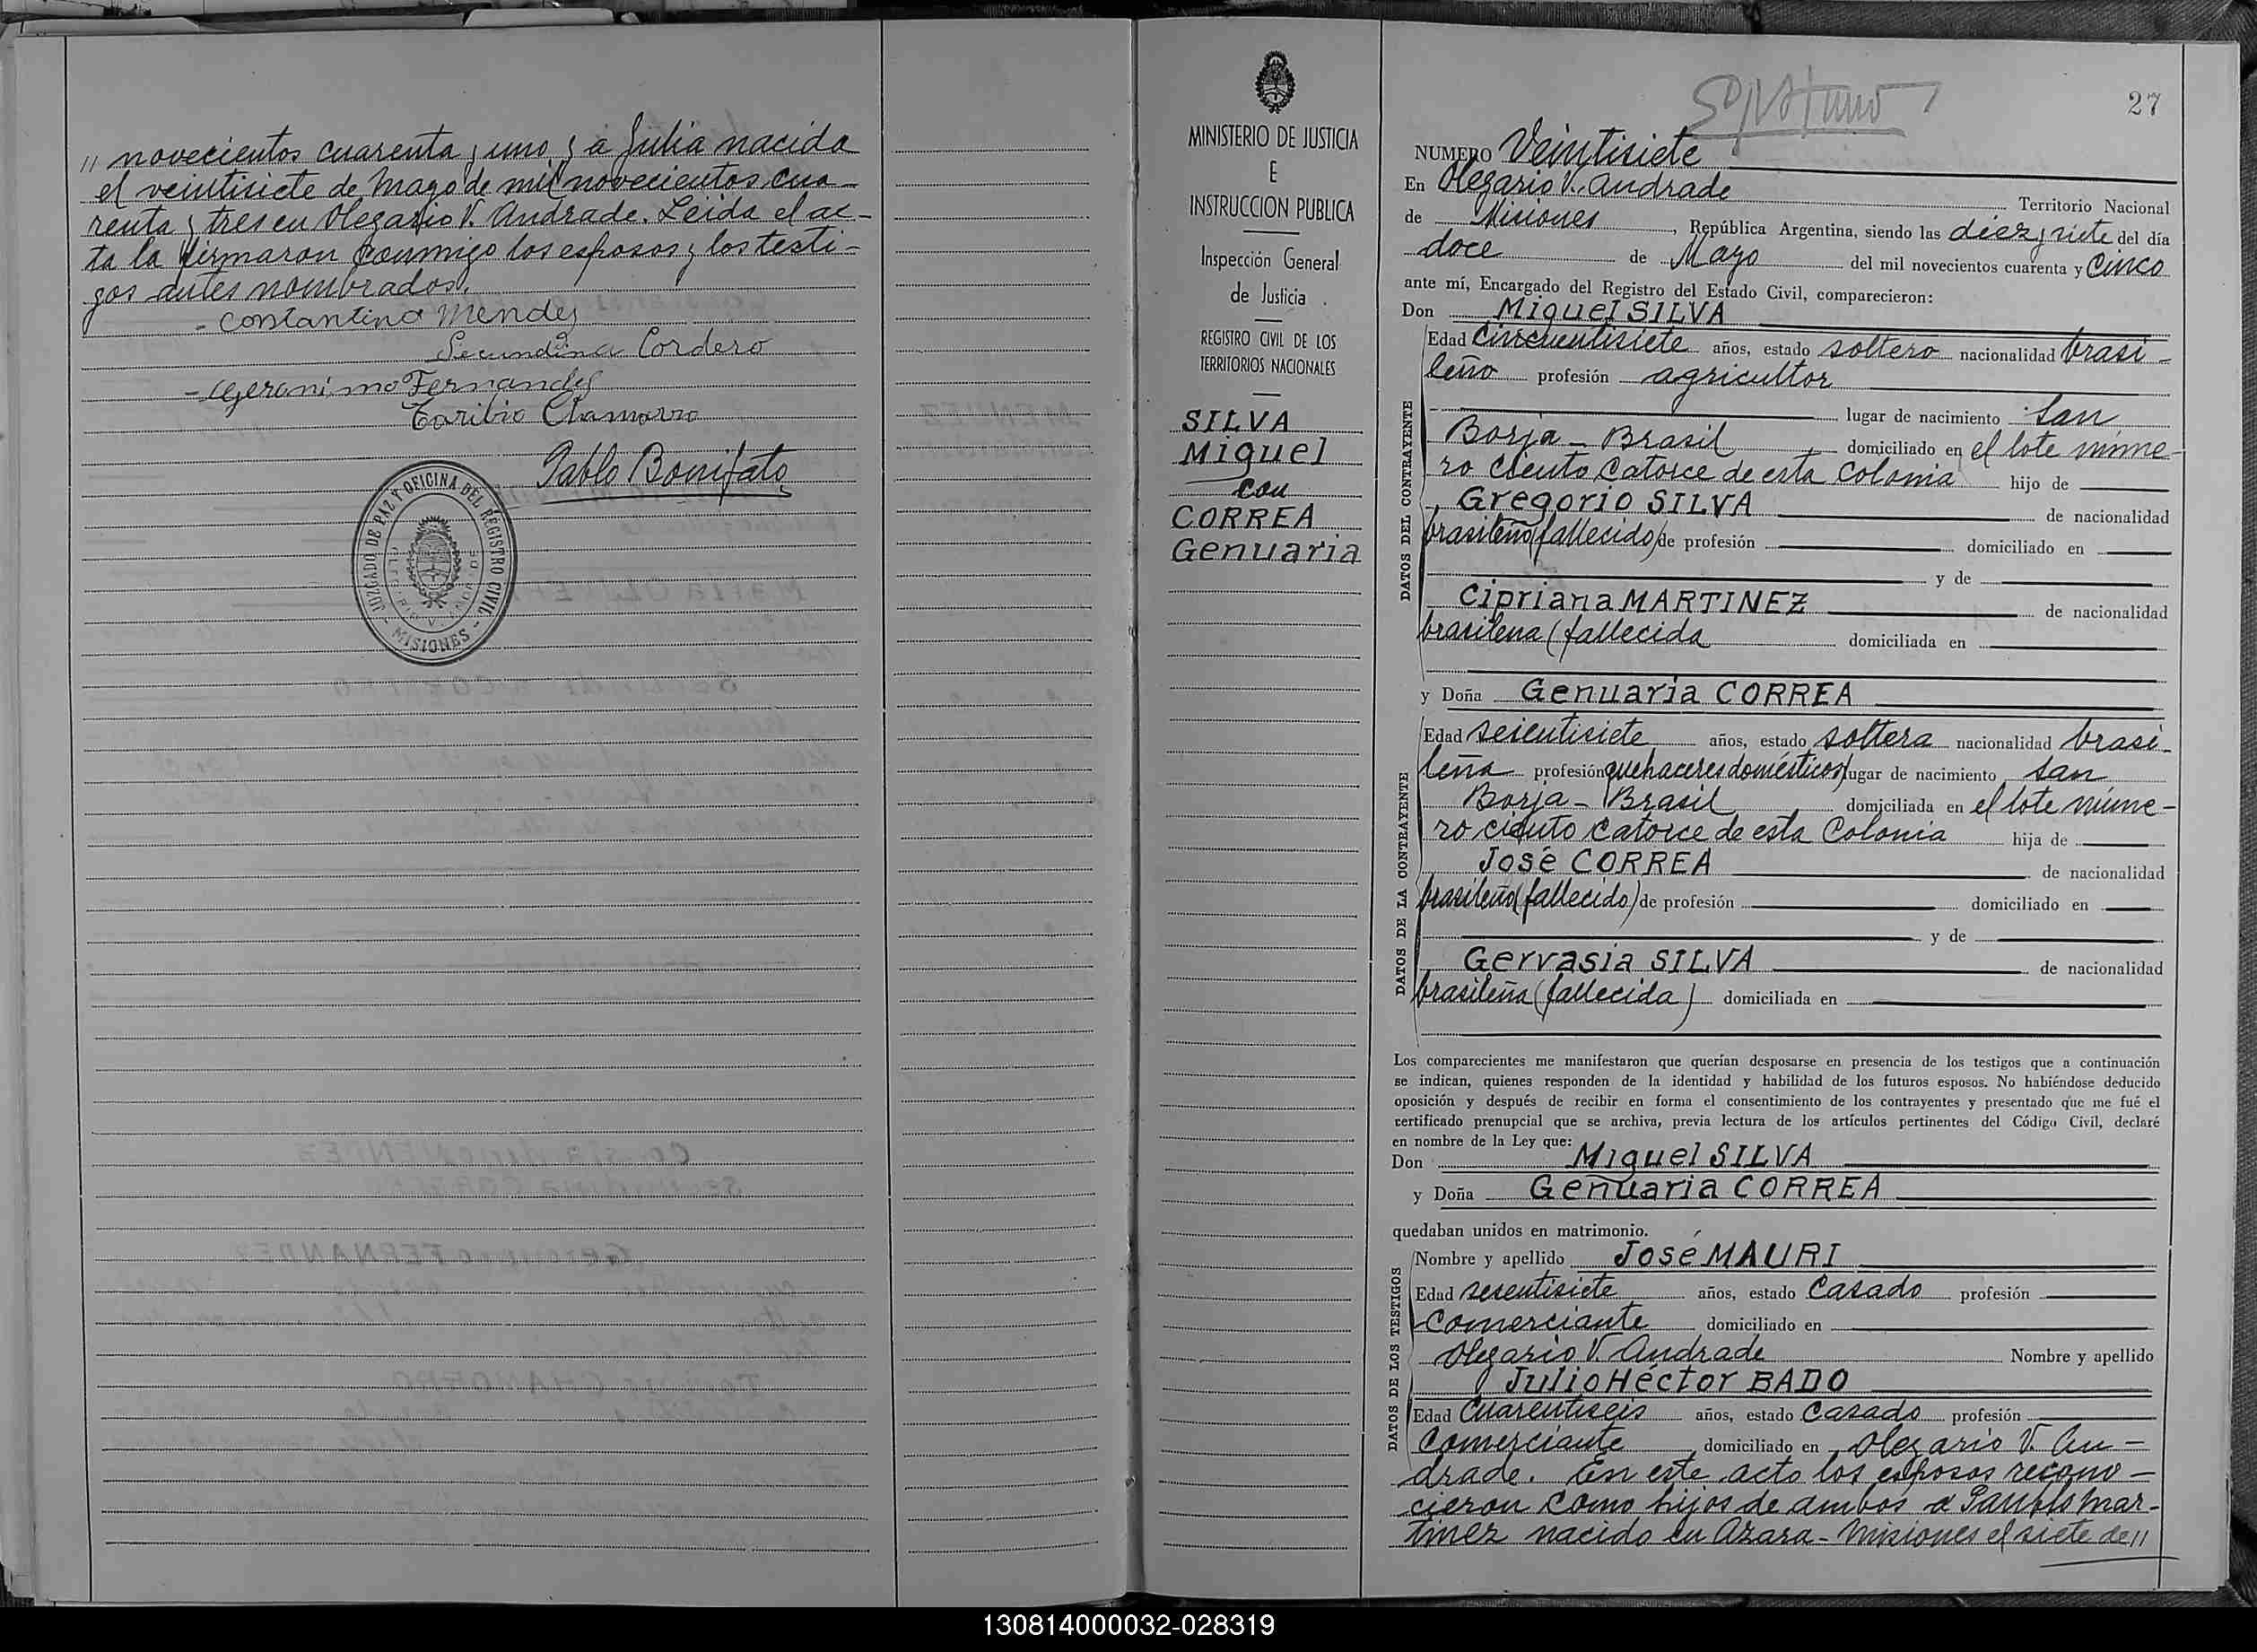 // novecientos cuarenta y uno y a Julia nacida
el veintisiete de Mayo de mil novecientos cua-
renta y tres en Olegario V. Andrade. Leída el ac-
ta la firmaron conmigo los esposos y los testi-
gos antes nombrados.
- Constantino Mendez
Secundina Cordero
- Geronimo Fernandez
Toribio Chamorro
Pablo Bonifato
JUZGADO DE PAZ Y OFICINA DEL REGISTRO CIVIL
- MISIONES -
MINISTERIO DE JUSTICIA
E
INSTRUCCION PUBLICA
Inspección General
de Justicia
REGISTRO CIVIL DE LOS
TERRITORIOS NACIONALES
SILVA
Miguel
con
CORREA
Genuaria
27
NUMERO Veintisiete
En Olegario V. Andrade Territorio Nacional
de Misiones, República Argentina, siendo las diez y siete del día
doce de Mayo del mil novecientos cuarenta y Cinco
ante mí, Encargado del Registro del Estado Civil, comparecieron:
Don Miguel SILVA
DATOS DEL CONTRAYENTE
Edad Cincuentisiete años, estado soltero nacionalidad brasi-
leño profesión agricultor
lugar de nacimiento San
Borja - Brasil domiciliado en el lote núme-
ro ciento catorce de esta Colonia hijo de
Gregorio SILVA de nacionalidad
brasileño (fallecido) de profesión domiciliado en
y de
Cipriana MARTINEZ de nacionalidad
brasilena (fallecida domiciliada en
y Doña Genuaria CORREA
DATOS DE LA CONTRAYENTE
Edad sesentisiete años, estado soltera nacionalidad brasi-
leña profesión quehaceres domésticos lugar de nacimiento San
Borja - Brasil domiciliada en el lote núme-
ro ciento catorce de esta Colonia hija de
José CORREA de nacionalidad
brasileño (fallecido) de profesión domiciliado en
y de
Gervasia SILVA de nacionalidad
brasileña (fallecida) domiciliada en
Los comparecientes me manifestaron que querían desposarse en presencia de los testigos que a continuación
se indican, quienes responden de la identidad y habilidad de los futuros esposos. No habiéndose deducido
oposición y después de recibir en forma el consentimiento de los contrayentes y presentado que me fué el
certificado prenupcial que se archiva, previa lectura de los artículos pertinentes del Código Civil, declaré
en nombre de la Ley que:
Don Miguel SILVA
y Doña Genuaria CORREA
quedaban unidos en matrimonio.
DATOS DE LOS TESTIGOS
Nombre y apellido José MAURI
Edad sesentisiete años, estado Casado profesión
Comerciante domiciliado en
Olegario V. Andrade Nombre y apellido
Julio Héctor BADO
Edad Cuarentiseis años, estado Casado profesión
Comerciante domiciliado en Olegario V. An-
drade. En este acto los esposos recono-
cieron como hijos de ambos a Mar-
tinez nacido en Azara - Misiones el siete de //
130814000032-028319